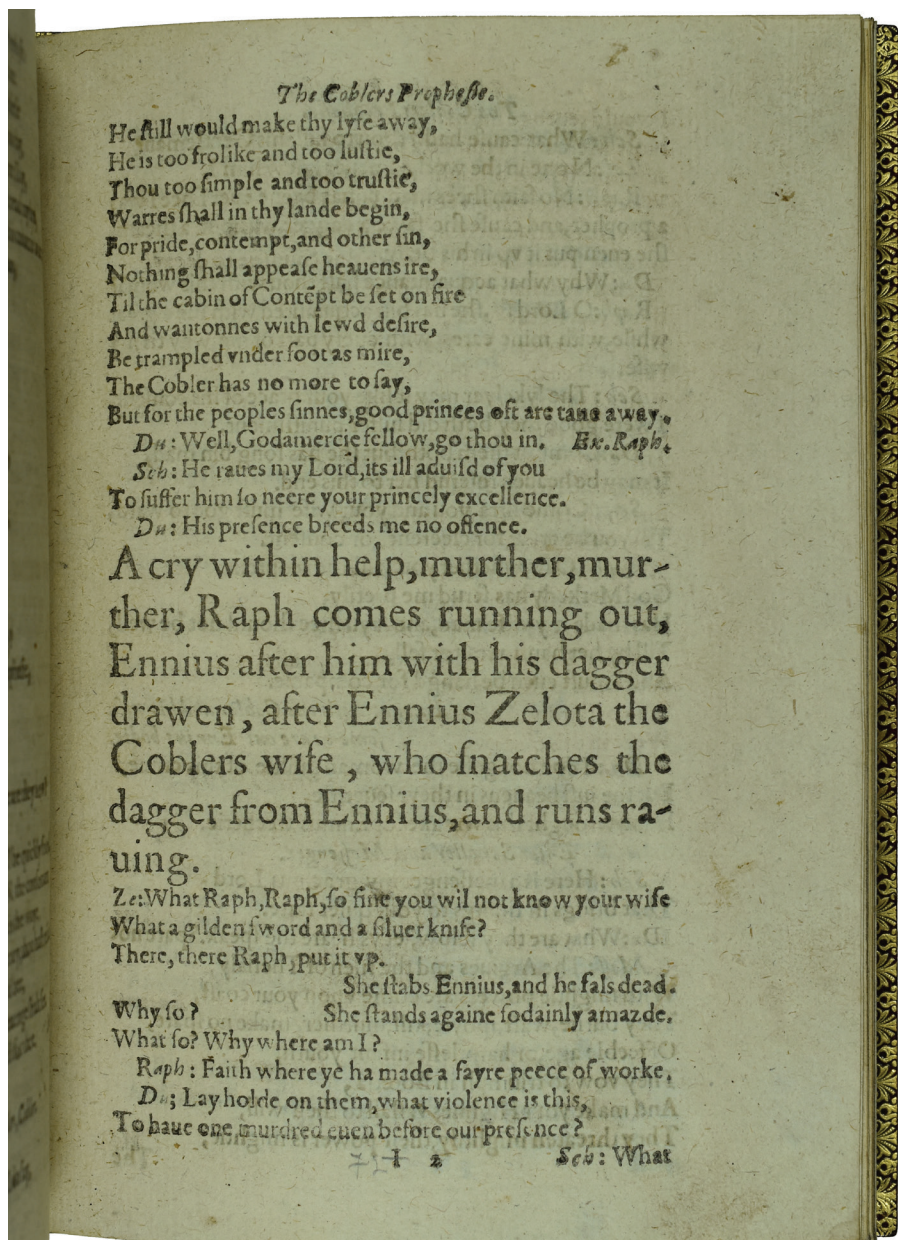 The Coblers Prophesie.
He ſtill would make thy lyfe away,
He is too frolike and too luſtie,
Thou too ſimple and too truſtie,
Warres ſhall in thy lande begin,
For pride, contempt, and other ſin,
Nothing ſhall appeaſe heauens ire,
Til the cabin of Contẽpt be ſet on fire
And wantonnes with lewd deſire,
Be trampled vnder foot as mire,
The Cobler has no more to ſay,
But for the peoples ſinnes, good princes oft are tane away.
Du: Well, Godamercie fellow, go thou in. Ex. Raph.
Sch: He raues my Lord, its ill aduiſd of you
To ſuffer him ſo neere your princely excellence.
Du: His preſence breeds me no offence.
A cry within help, murther, mur-
ther, Raph comes running out,
Ennius after him with his dagger
drawen, after Ennius Zelota the
Coblers wife, who ſnatches the
dagger from Ennius, and runs ra-
uing.
Ze: What Raph, Raph, ſo fine you wil not know your wife
What a gilden ſword and a ſiluer knife?
There, there Raph, put it vp.
She ſtabs Ennius, and he fals dead.
Why ſo? She ſtands againe ſodainly amazde.
What ſo? Why where am I?
Raph: Faith where ye ha made a fayre peece of worke.
Du; Lay holde on them, what violence is this,
To haue one murdred euen before our preſence?
I 2 Sch: What